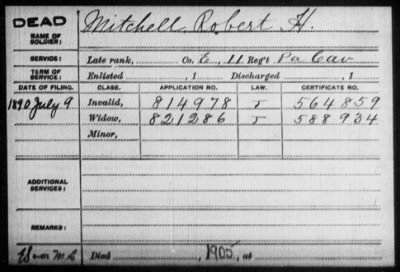 DEAD
NAME OF SOLDIER: Mitchell, Robert H.
SERVICE: Late rank, Co. E, 11 Reg't Pa Cav
TERM OF SERVICE: Enlisted , 1 Discharged , 1
DATE OF FILING. CLASS. APPLICATION NO. LAW. CERTIFICATE NO.
1890 July 9 Invalid, 814978 J 564859
Widow, 821286 J 588934
Minor,
ADDITIONAL SERVICES:
REMARKS:
Died , 1905, at